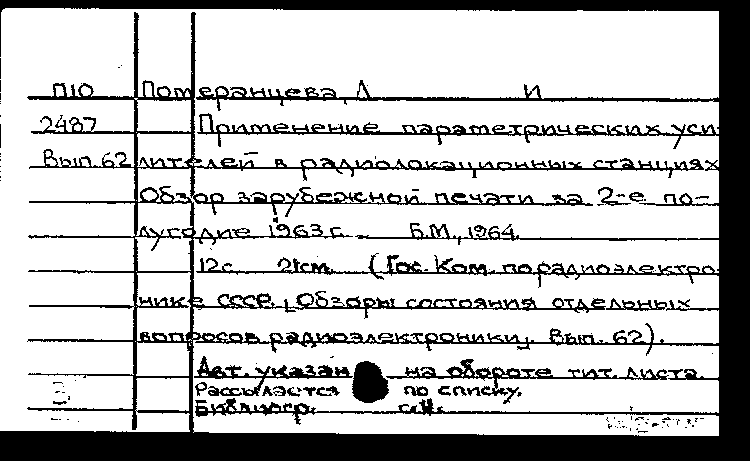 П10 Померанцева, Л И
2487 Применение параметрических уси-
Вып. 62 лителей в радиолокационных станциях
Обзор зарубежной печати за 2-е по-
лугодие 1963 г. Б.М., 1964.
12 с. 21 см. (Гос. Ком. по радиоэлектро-
нике СССР. Обзоры состояния отдельных
вопросов радиоэлектроники. Вып. 62).
Авт. указан на обороте тит. листа.
Рассылается по списку.
Библиогр.